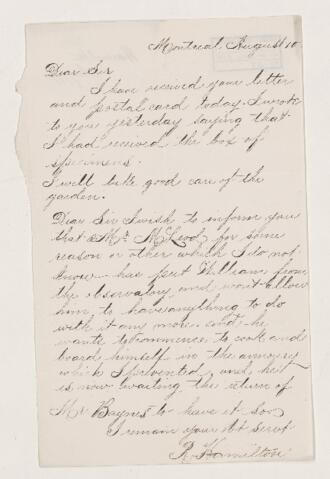 Montreal August 10
Dear Sir
I have received your letter
and postal card today. I wrote
to you yesterday saying that
I had received the box of
specimens.
I will take good care of the
garden.
Dear Sir I wish to inform you
that Mr McLeod for some
reason or other which I do not
know has put William from
the observatory and wont allow
him to have anything to do
with it any more and he
wants to commence to cook and
board himself in the
which I prevented and he
is now waiting the return of
Mr Baynes to have it so
I remain your Servt
R. Hamilton